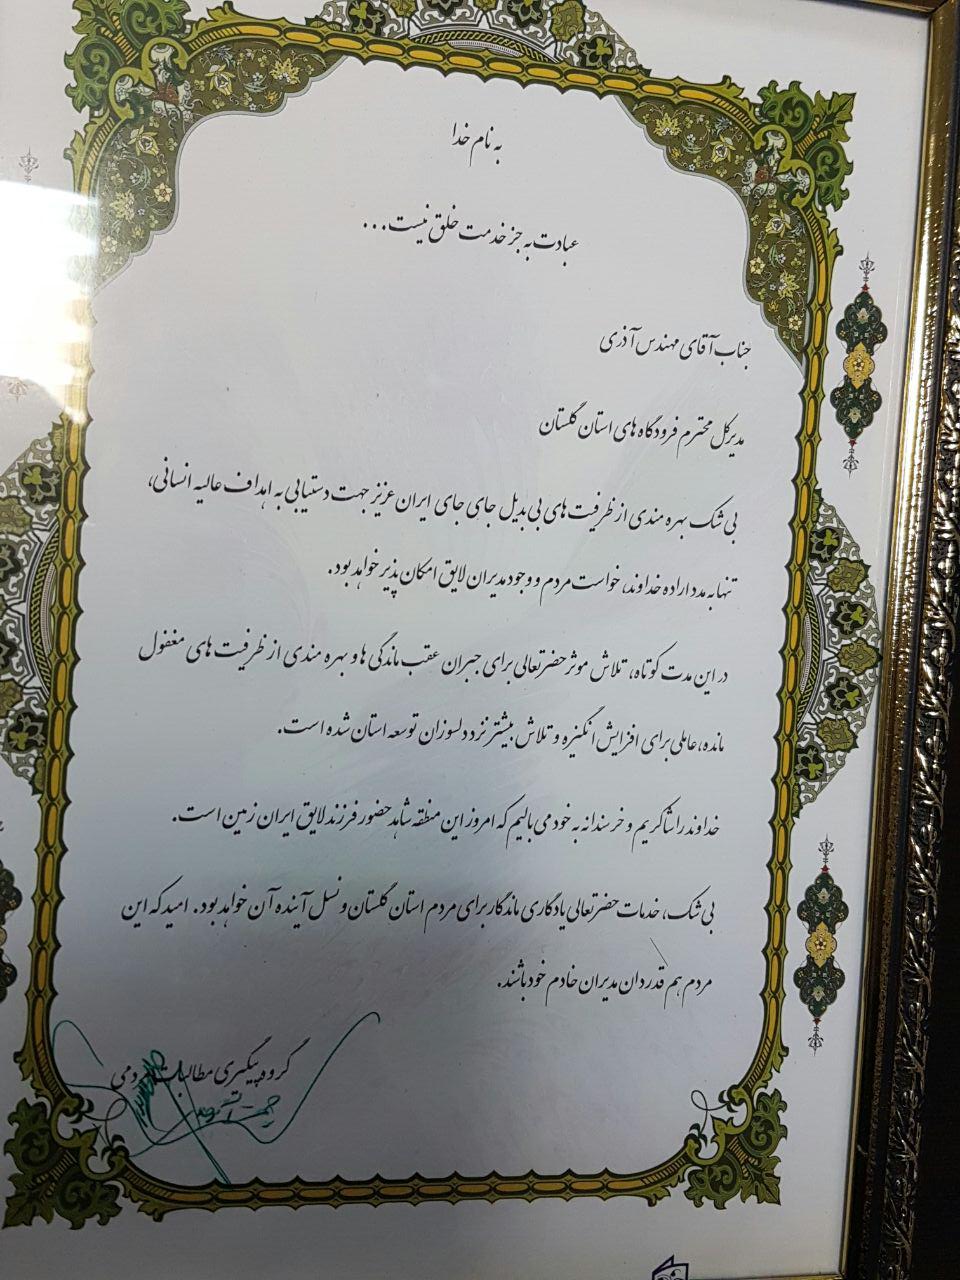 به نام خدا
عبادت به جز خدمت خلق نیست...
جناب آقای مهندس آذری
مدیرکل محترم فرودگاه های استان گلستان
بی شک بهره مندی از ظرفیت های بی بدیل جای جای ایران عزیز جهت دستیابی به اهداف عالیه انسانی،
تنها به مدد اراده خداوند، خواست مردم و وجود مدیران لایق امکان پذیر خواهد بود.
در این مدت کوتاه، تلاش موثر حضرتعالی برای جبران عقب ماندگی ها و بهره مندی از ظرفیت های مغفول
مانده، عاملی برای افزایش انگیزه و تلاش بیشتر نزد دلسوزان توسعه استان شده است.
خداوند را شاکریم و خرسندانه به خود می بالیم که امروز این منطقه شاهد حضور فرزند لایق ایران زمین است.
بی شک، خدمات حضرتعالی یادگاری ماندگار برای مردم استان گلستان و نسل آینده آن خواهد بود. امید که این
مردم هم قدردان مدیران خادم خود باشند.
گروه پیگیری مطالبات مردمی